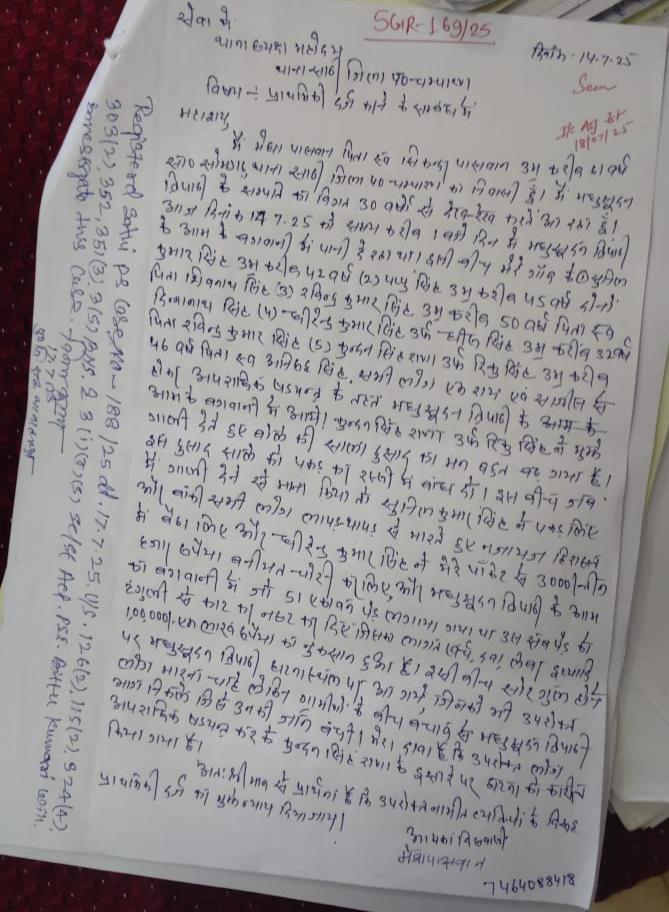 SGR-169/25
सेवा में
थानाध्यक्ष महोदय
दिनांक-14.7.25
थाना साठी जिला प०-चम्पारण
Seen
विषय :- प्राथमिकी दर्ज करने के सम्बन्ध में
18/07/25
महाशय,
में मेघा पासवान पिता स्व पासवान उम्र करीब 61 वर्ष
सा० थाना साठी जिला प०-चम्पारण का निवासी हूँ। मैं मधुसूदन
त्रिपाठी के सम्पति का विगत 30 वर्षों से देख-रेख करते आ रहा हूँ।
आज दिनांक 14.7.25 को समय करीब 1 बजे दिन में मधुसूदन त्रिपाठी
के आम के बगवानी में पानी दे रहा था। इसी बीच मेरे गाँव के ① सुनिल
कुमार सिंह उम्र करीब 42 वर्ष (2) पप्पु सिंह उम्र करीब 45 वर्ष दोनों
पिता शिवनाथ सिंह (3) रविन्द्र कुमार सिंह उम्र करीब 50 वर्ष पिता स्व
सिंह (4) कुमार सिंह उर्फ सिंह उम्र करीब
पिता रविन्द्र कुमार सिंह (5) कुन्दन सिंह राणा उर्फ रिशु सिंह उम्र करीब
46 वर्ष पिता स्व सिंह, सभी लोग एक राय एवं साजिश से
होकर अपराधिक षडयन्त्र के तहत मधुसूदन त्रिपाठी के
आम के बगवानी में आये। कुन्दन सिंह राणा उर्फ रिशु सिंह ने मुझे
गाली देते हुए बोले की साला दुसाद का मन बहुत बढ़ गया है।
इस दुसाद साले को पकड़ कर रस्सी से बांध दो। इस बीच जब
मैं गाली देने से मना किया तो सुनिल कुमार सिंह ने पकड़ लिए
और बाकी सभी लोग लापड़-थापड़ से मारते हुए नजायज हिरासत
में ले लिए और कुमार सिंह ने मेरे पॉकेट से 3000/-तीन
हजार रुपैया चोरी कर लिए, और मधुसूदन त्रिपाठी के आम
का बगवानी में जो 51 एकावन पेड़ लगाया गया था उस सब पेड़ को
से काट कर नष्ट कर दिए जिसका लागत खर्च, दवा, लेबर इत्यादि
1,00,000/-एक लाख रुपैया का नुकसान हुआ है। इसी बीच शोर गुल होने
पर मधुसूदन त्रिपाठी घटनास्थल पर आ गये, जिनको भी उपरोक्त
लोग मारना चाहे लेकिन ग्रामीणों के बीच बचाव से मधुसूदन त्रिपाठी
भाग निकले जिससे उनकी जान बची। मेरा दावा है कि उपरोक्त लोग
अपराधिक षडयन्त्र कर के कुन्दन सिंह राणा के इशारे पर घटना को कारित
किया गया है।
अतः श्रीमान से प्रार्थना है कि उपरोक्त नामित व्यक्तियों के विरुद्ध
प्राथमिकी दर्ज कर मुझे न्याय दिया जाय।
आपका विश्वासी
मेघा पासवान
7464088418
Registered Sathi PS Case No-188/25 dt. 17.7.25. U/S. 126(2), 115(2), 324(4),
303(2), 352, 351(3), 3(5) BNS. & 3(1)(r)(s) sc/st Act. PSI. Bittu Kumari will
investigate this Case.
17.7.25